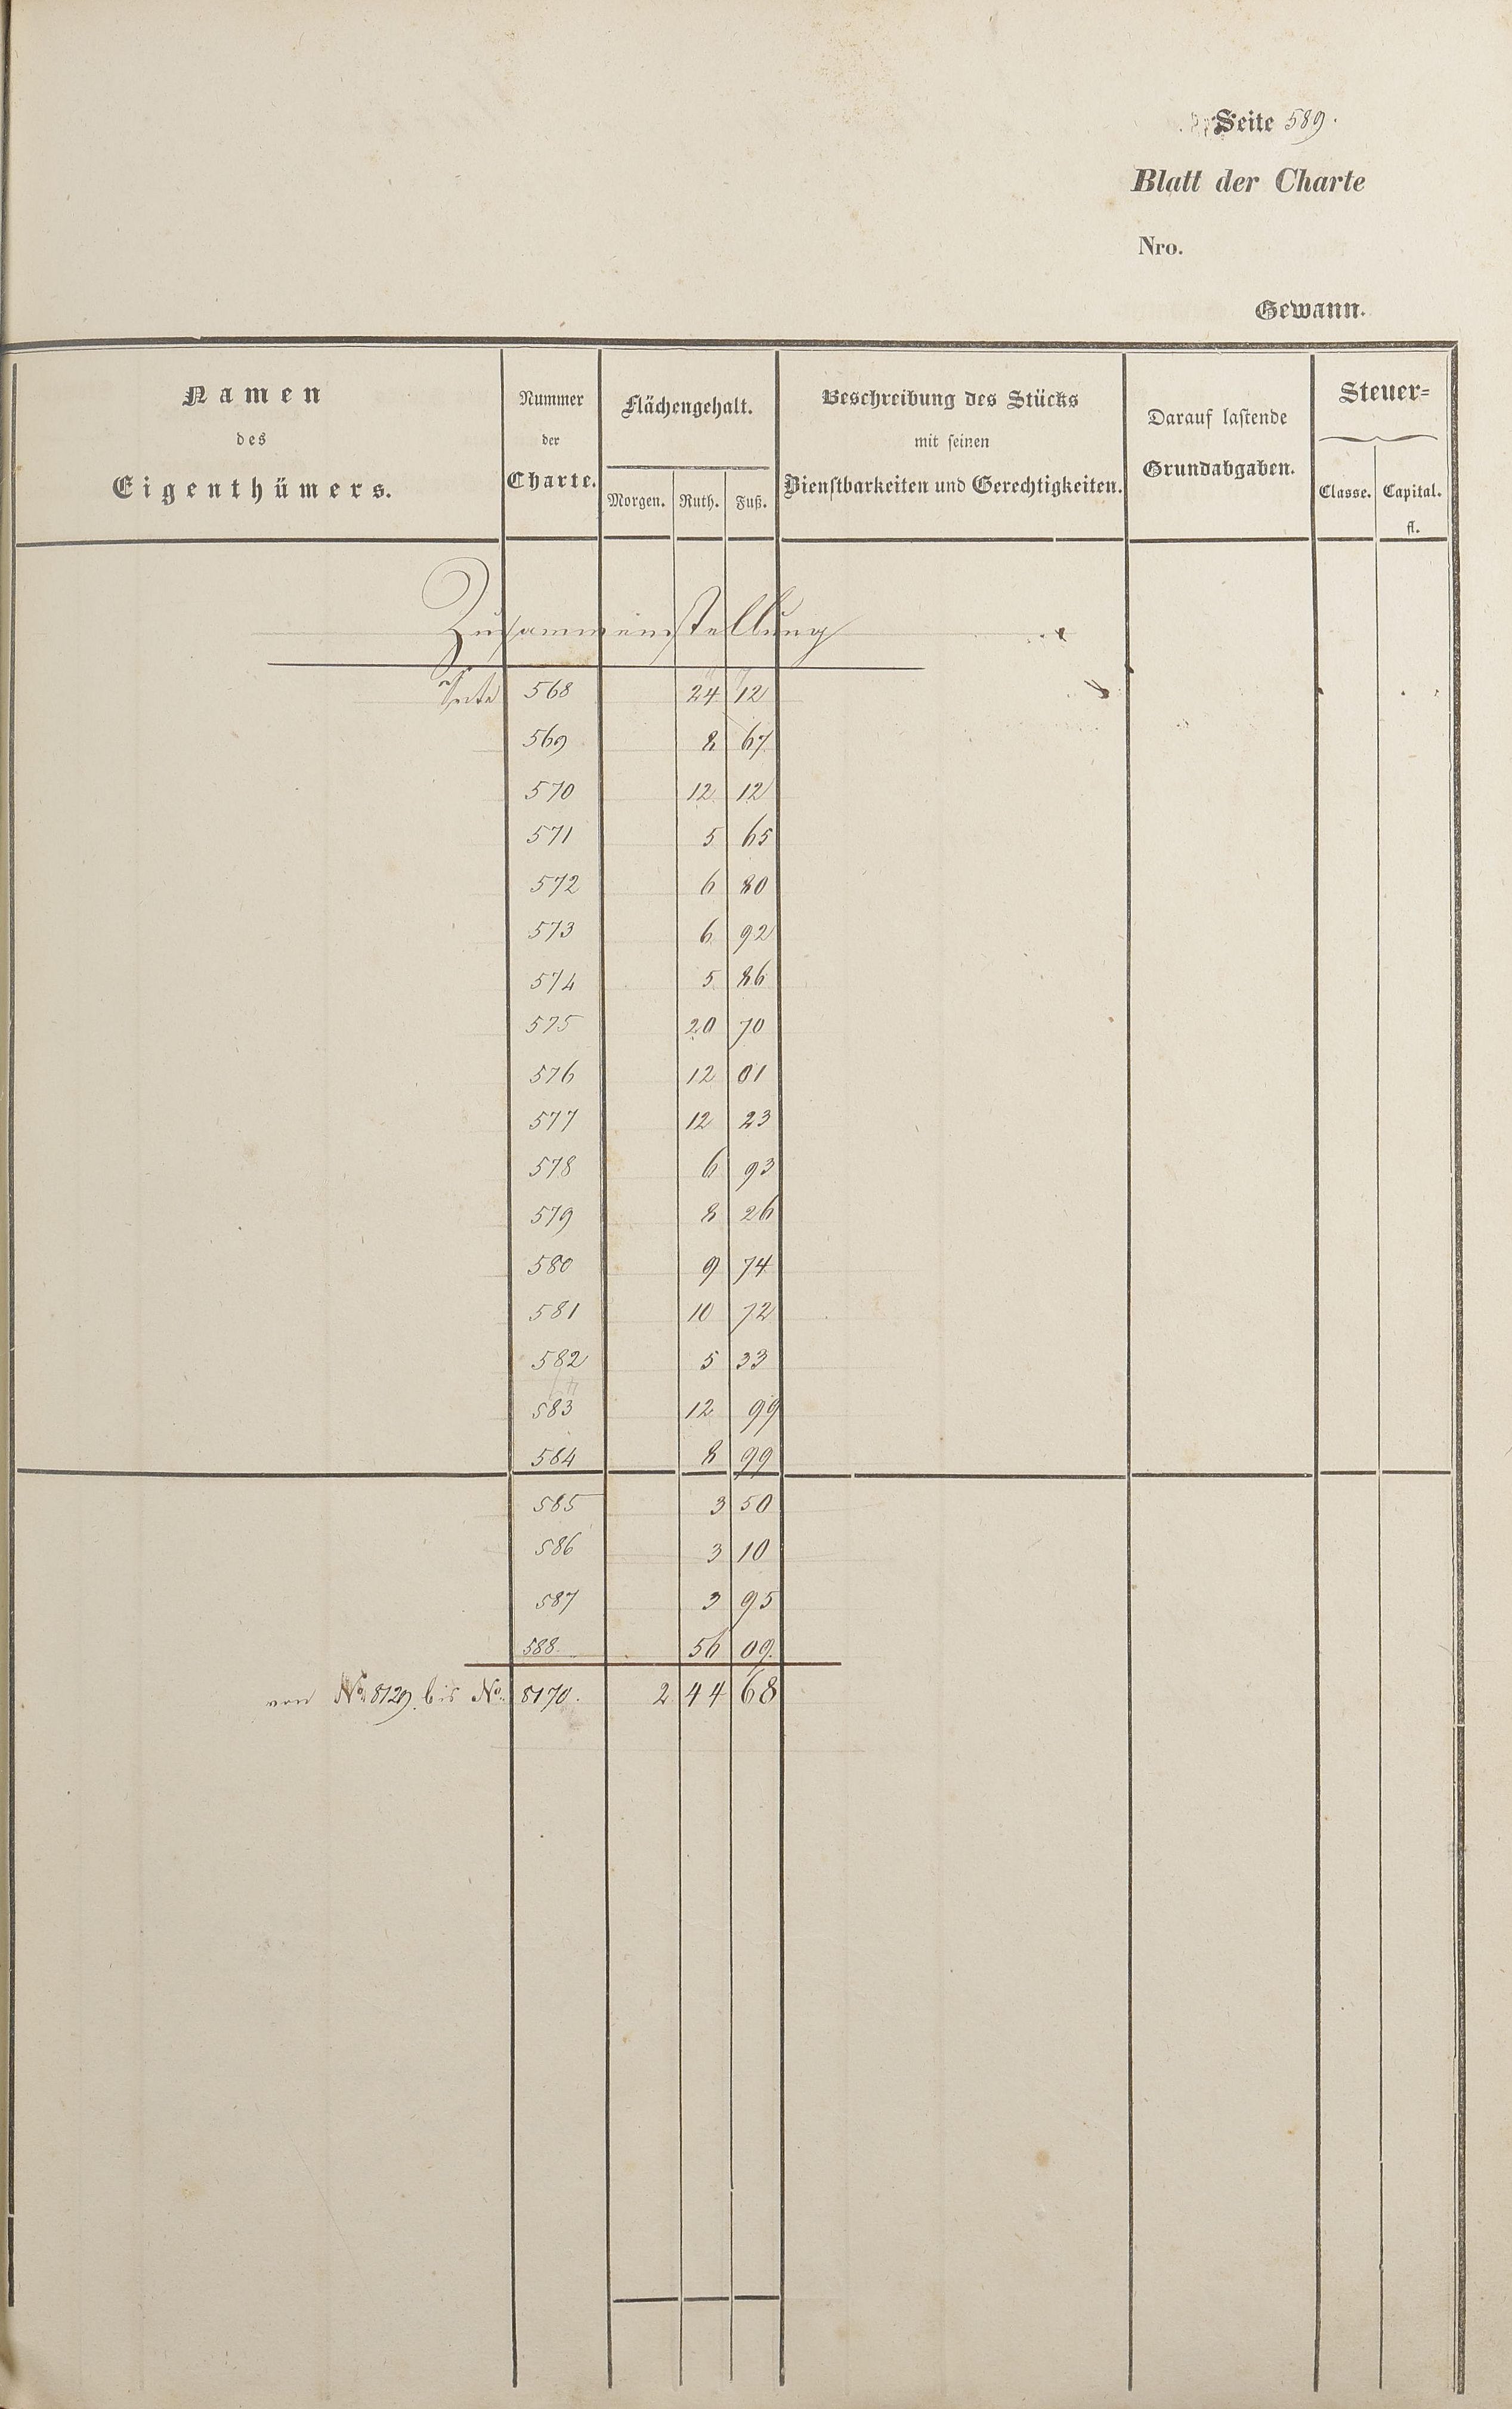 Seite 589.
Blatt der Charte
Nro.
Gewann.
Namen
des
Eigenthümers.
Nummer
der
Charte.
Flächengehalt.
Morgen. Ruth. Fuß.
Beschreibung des Stücks
mit seinen
Dienstbarkeiten und Gerechtigkeiten.
Darauf lastende
Grundabgaben.
Steuer=
Classe. Capital.
fl.
Zusammenstellung
Seite 568 24 12
569 8 67
570 12 12
571 5 65
572 6 80
573 6 92
574 5 86
575 20 70
576 12 01
577 12 23
578 6 93
579 8 26
580 9 74
581 10 72
582 5 33
583 12 99
584 8 99
585 3 50
586 3 10
587 3 95
588. 56 09.
von No. 8129. bis No. 8170. 2 44 68